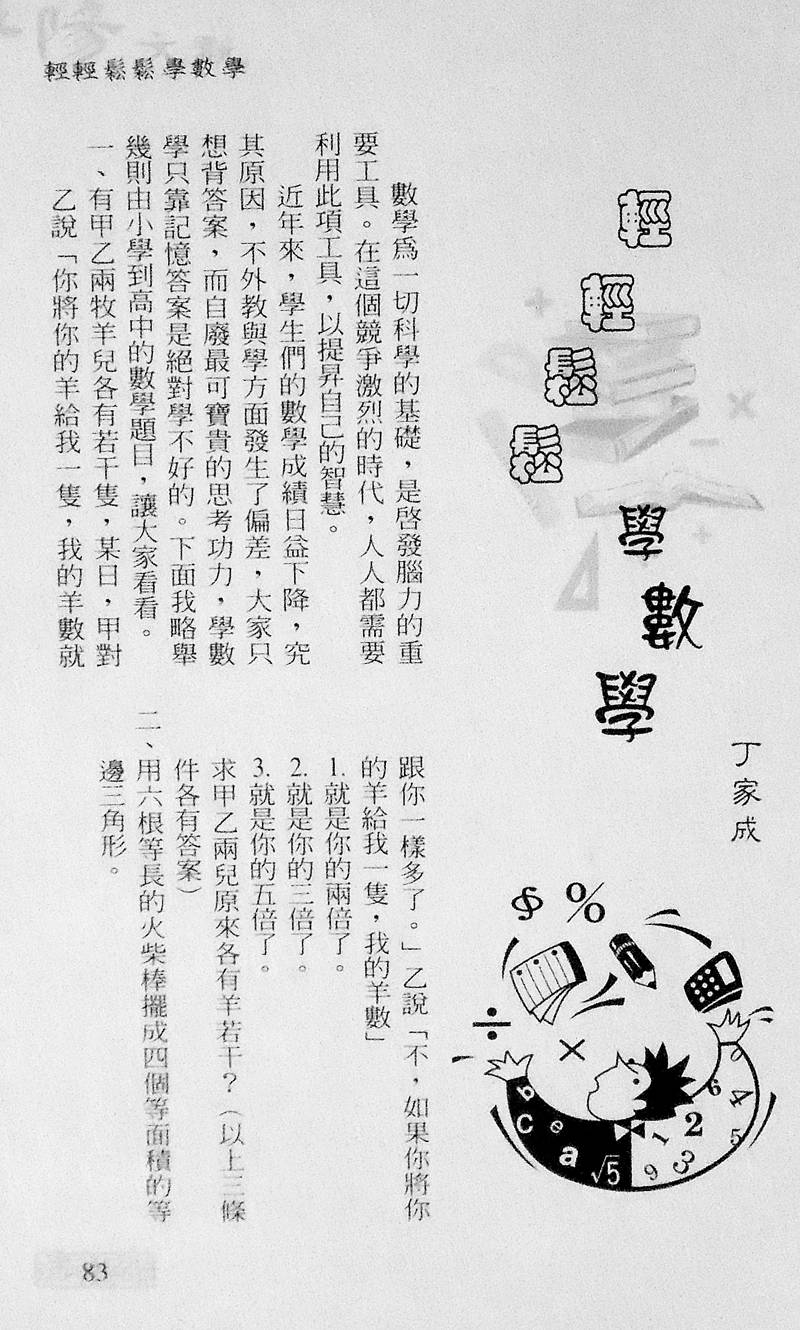 輕輕鬆鬆學數學
輕輕鬆鬆學數學
丁家成
數學爲一切科學的基礎，是啓發腦力的重
要工具。在這個競爭激烈的時代，人人都需要
利用此項工具，以提昇自己的智慧。
近年來，學生們的數學成績日益下降，究
其原因，不外教與學方面發生了偏差，大家只
想背答案，而自廢最可寶貴的思考功力，學數
學只靠記憶答案是絕對學不好的。下面我略舉
幾則由小學到高中的數學題目，讓大家看看。
一、有甲乙兩牧羊兒各有若干隻，某日，甲對
乙說「你將你的羊給我一隻，我的羊數就
跟你一樣多了。」乙說「不，如果你將你
的羊給我一隻，我的羊數」
1.就是你的兩倍了。
2.就是你的三倍了。
3.就是你的五倍了。
求甲乙兩兒原來各有羊若干？（以上三條
件各有答案）
二、用六根等長的火柴棒擺成四個等面積的等
邊三角形。
$ %
÷ ×
b C e a √5
9 3 1 2 5 4 6
83